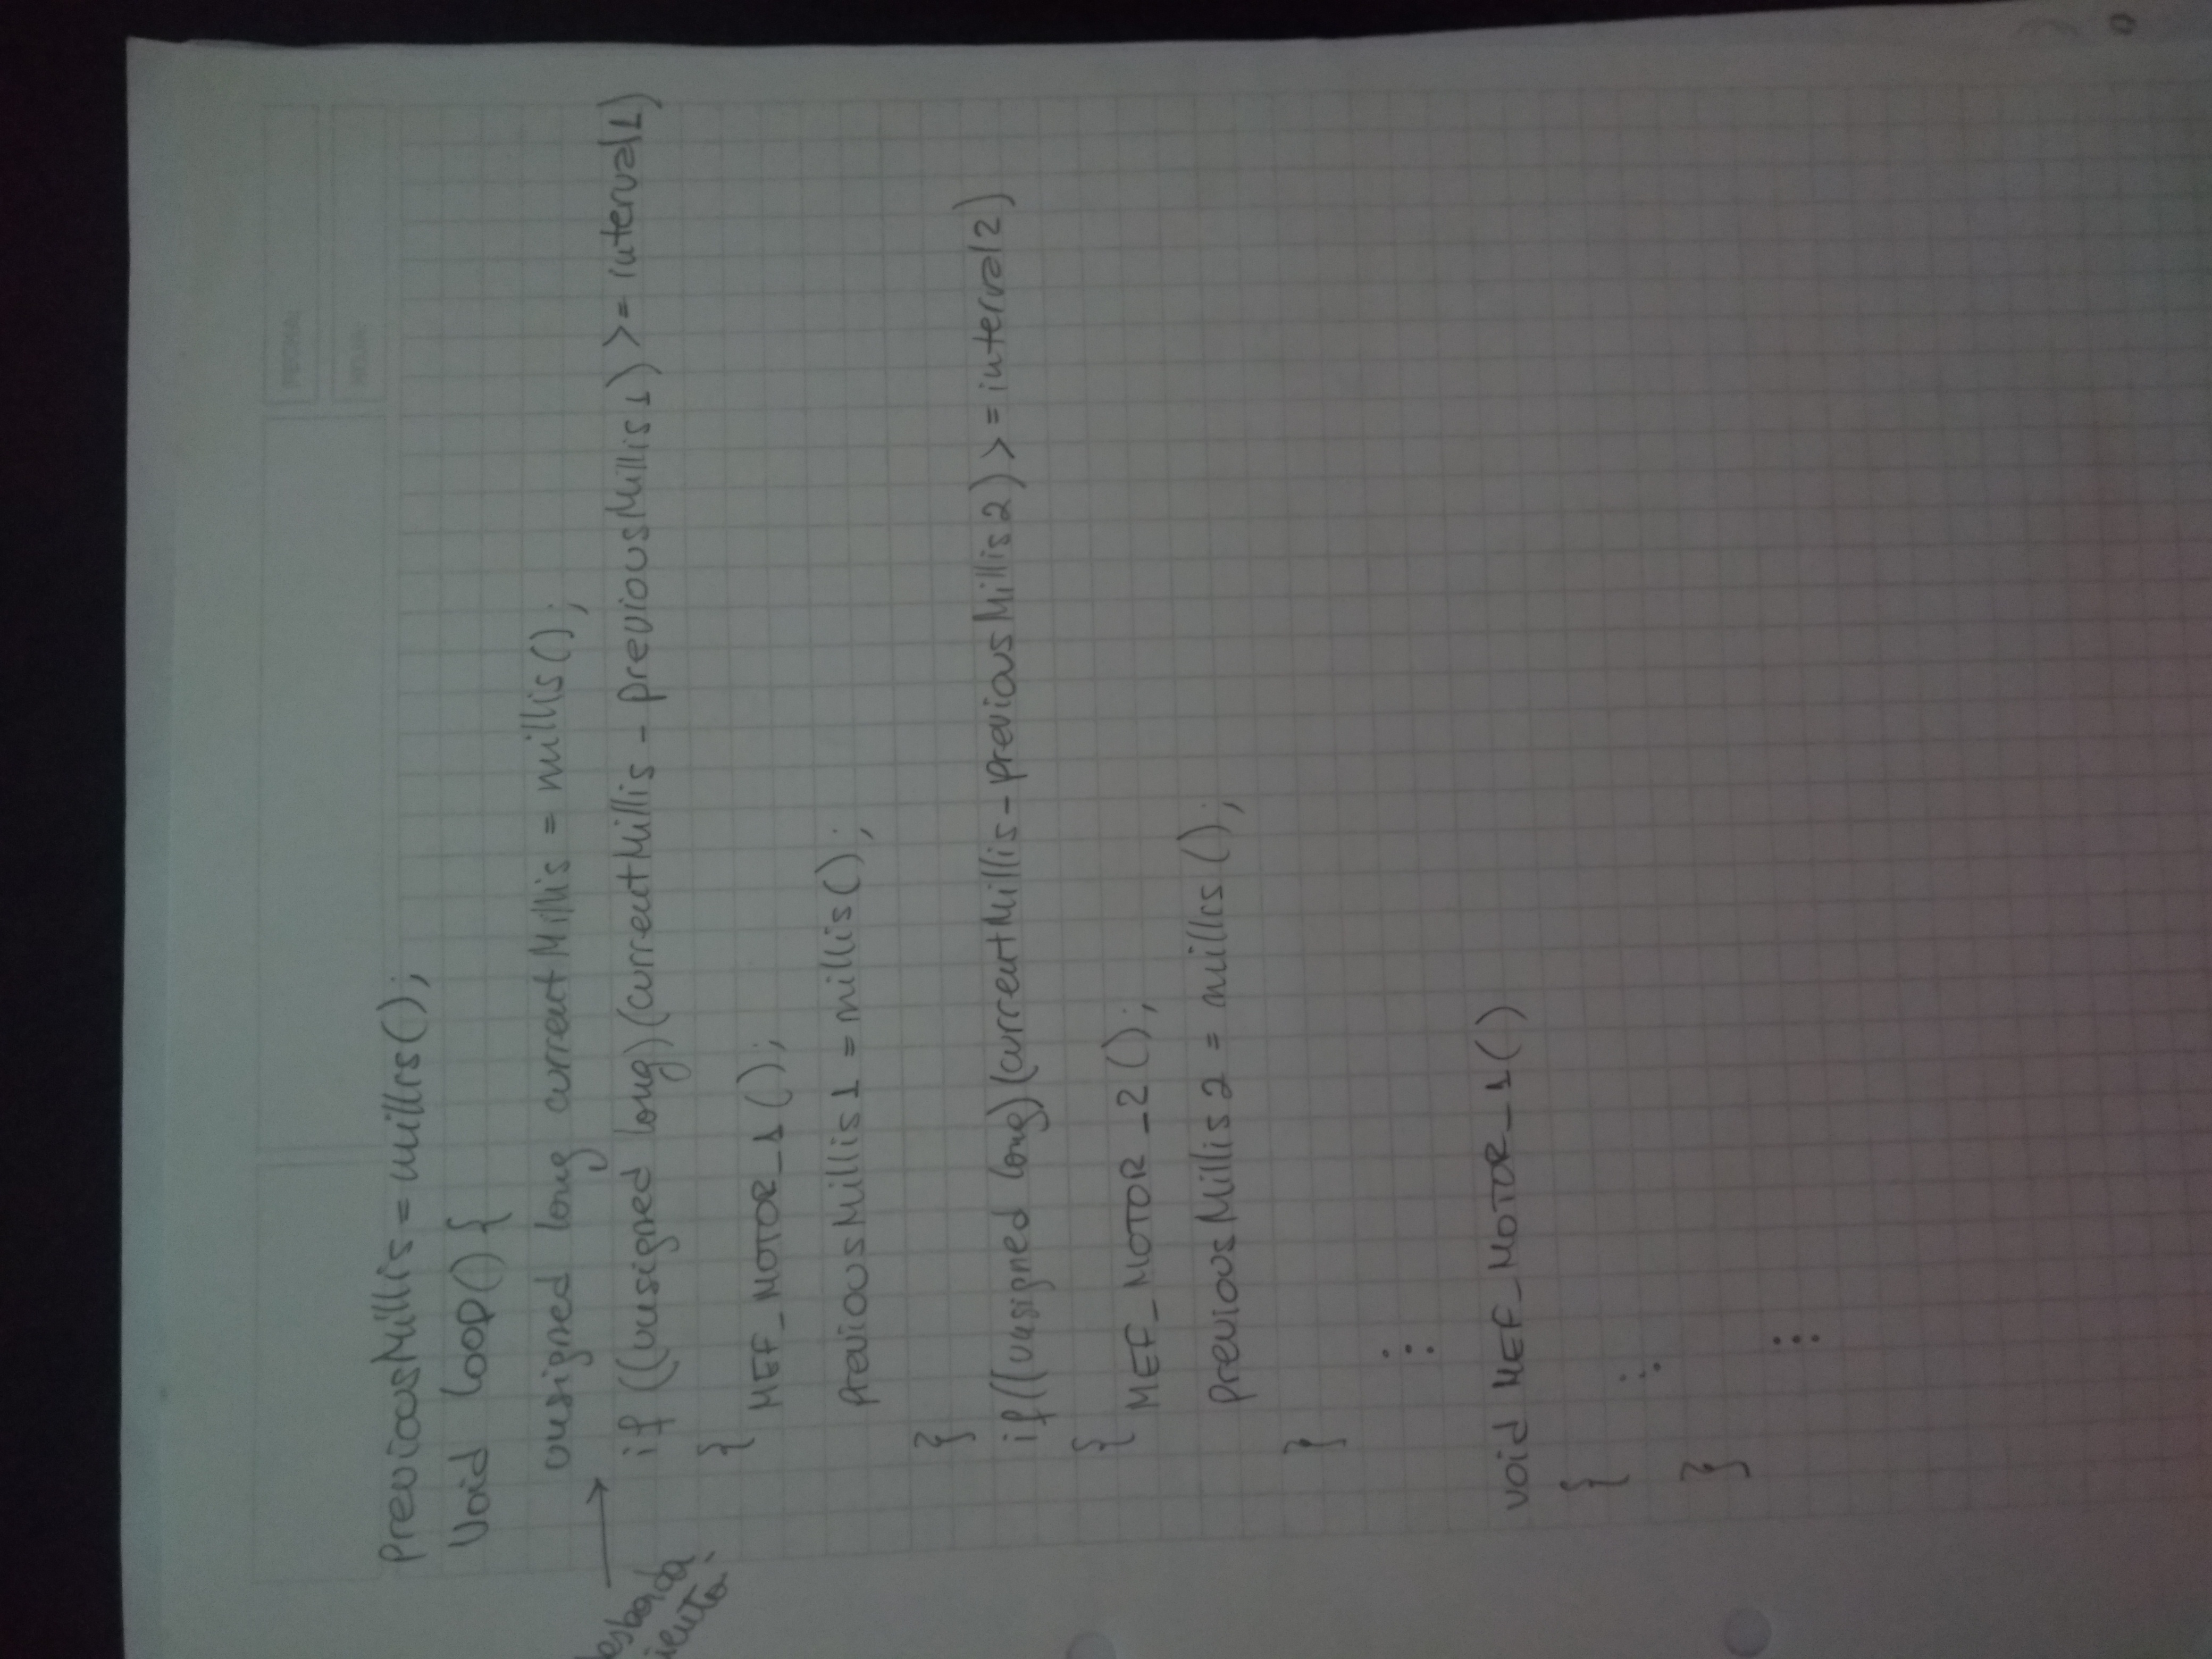 FECHA:
HOJA:
previousMillis = millis();
Void loop() {
unsigned long currentMillis = millis();
esborda
iento.
if ((unsigned long)(currentMillis - previousMillis1) >= interval1)
{
MEF_MOTOR_1();
previousMillis1 = millis();
}
if((unsigned long)(currentMillis - previousMillis2) >= interval2)
{
MEF_MOTOR_2();
previousMillis2 = millis();
}
⋮
void MEF_MOTOR_1()
{
⋮
}
⋮